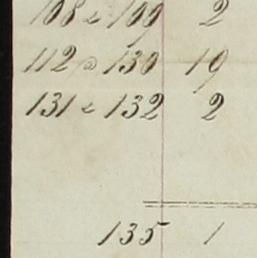 108 a 109 2
112 a 130 19
131 a 132 2
135 1